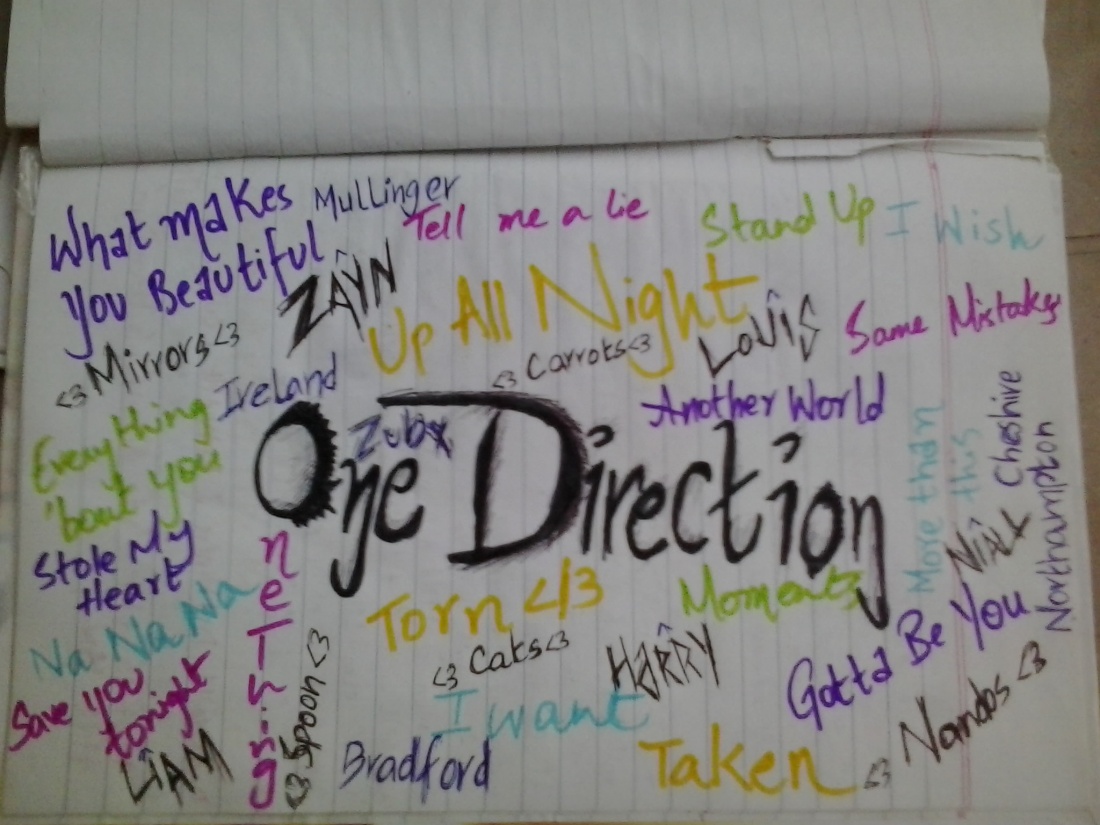 What makes
you Beautiful
Mullinger
Tell me a lie
Stand Up
I Wish
ZAYN
Up All Night
LOUIS
Same Mistakes
<3 Mirrors <3
<3 Carrots <3
Ireland
Another World
Everything
'bout you
One Direction
More than
this
Cheshire
Northampton
NIALL
Stole My
Heart
Na Na Na
Torn </3
Moments
Gotta Be You
<3 Cats <3
HARRY
Save you
tonight
I want
<3 Spoon <3
LIAM
Bradford
Taken
<3 Nandos <3